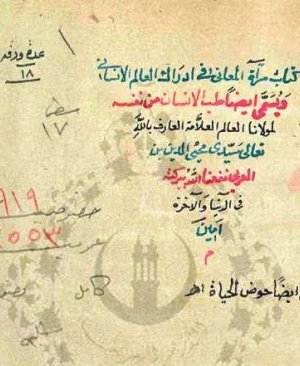 عدة ورقه
١٨
كتاب مرآة المعانى فى ادراك العالم الانسانى
ويسمى ايضا طب الانسان من نفسه
١٧
لمولانا العالم العلامة العارف بالله
تعالى سيدى محيى الدين بن
العربى نفعنا الله ببركته
فى الدنيا والآخرة
امين
م
٩١٩
خصوصية
٥٥٣
عمومية
كامل
ايضا حوض الحياة اهـ